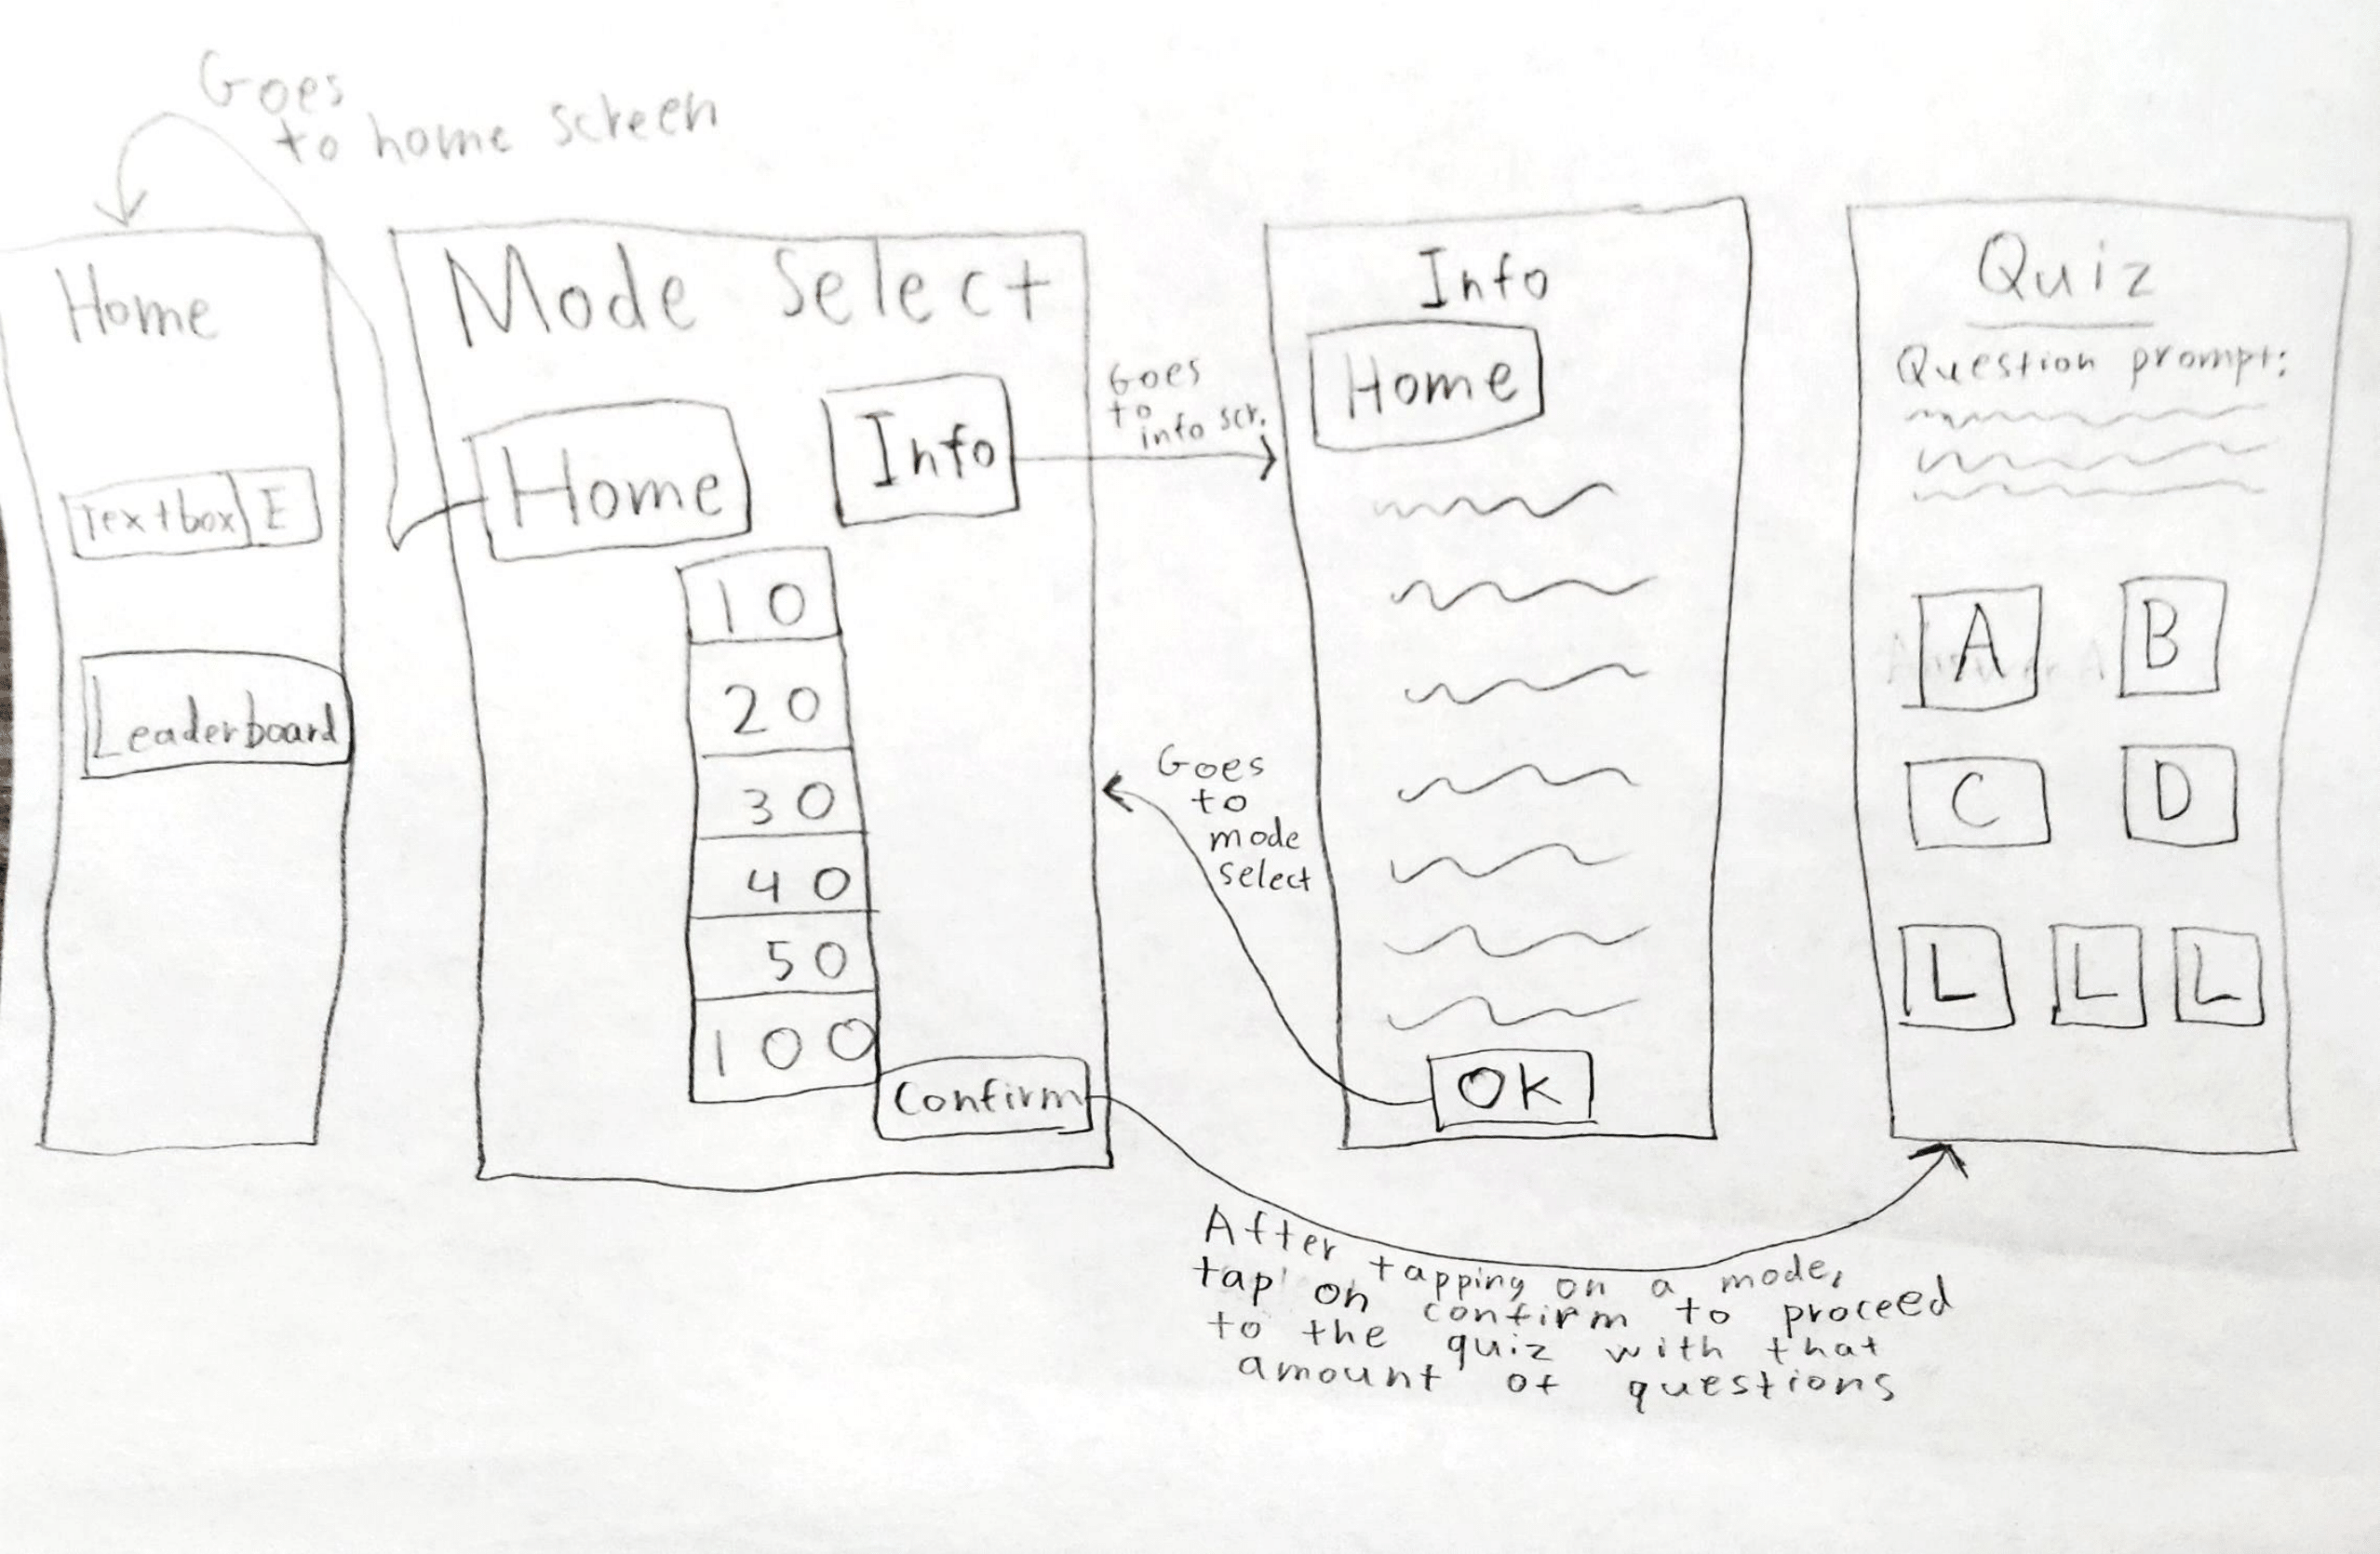 Goes
to home screen
Home
Textbox E
Leaderboard
Mode Select
Home
Info
10
20
30
40
50
100
Confirm
Goes
to
info scr.
Goes
to
mode
select
Info
Home
OK
Quiz
Question prompt:
A B
C D
L L L
After tapping on a mode,
tap on confirm to proceed
to the quiz with that
amount of questions